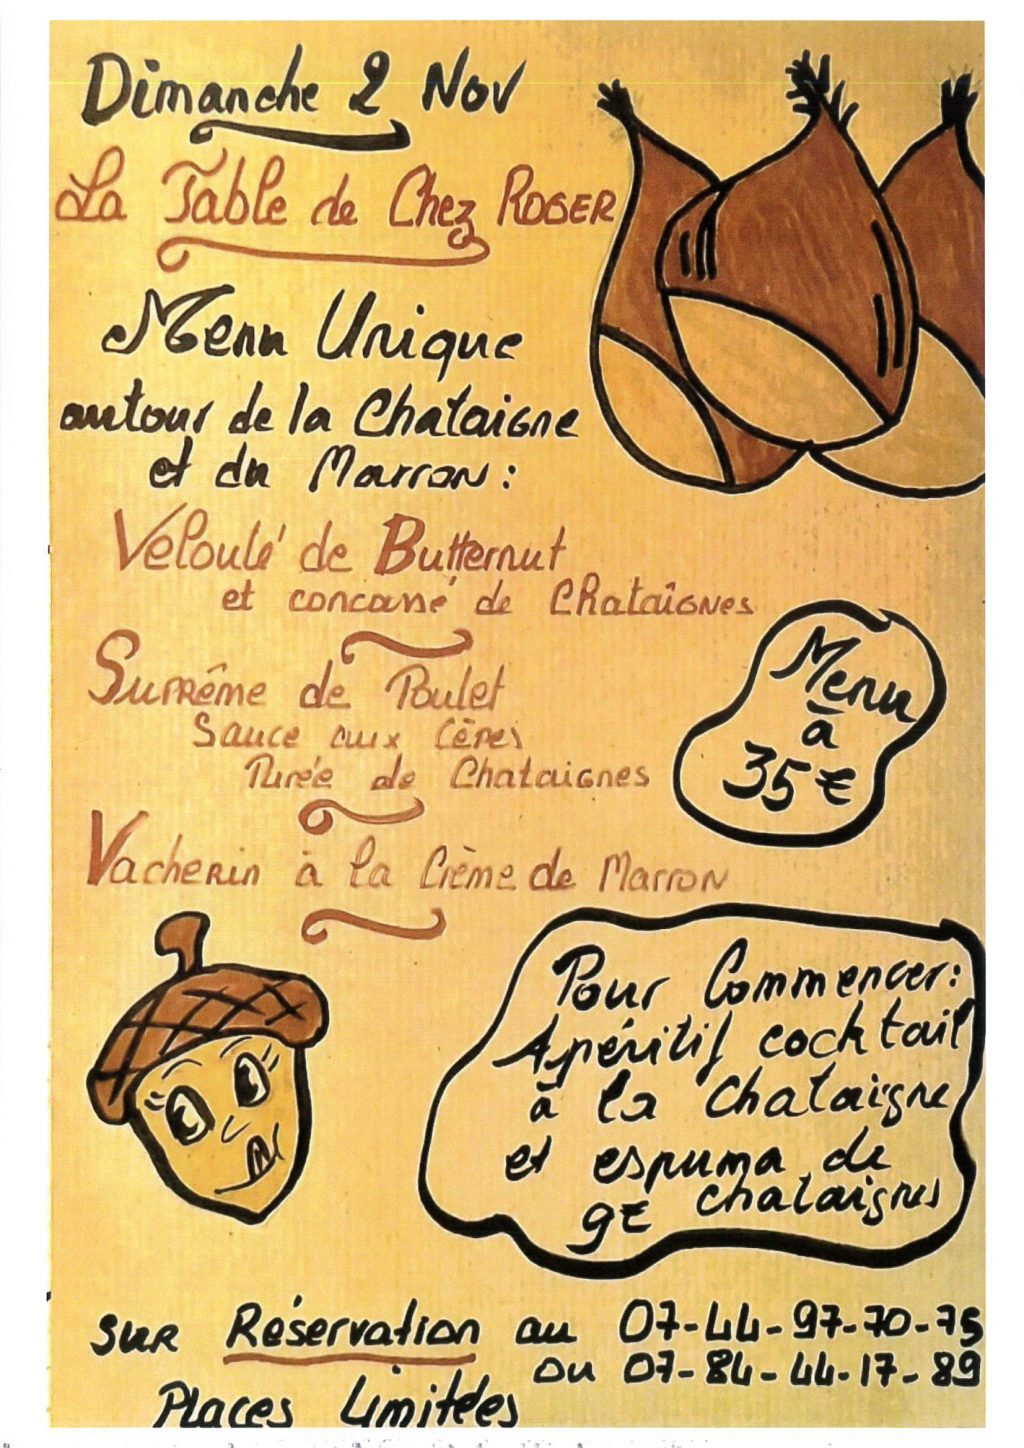 Dimanche 2 Nov
La Table de Chez ROGER
Menu Unique
autour de la Chataigne
et du Marron :
Velouté de Butternut
et concassé de Chataîgnes
Suprême de Poulet
Sauce aux Cèpes
Purée de Chataignes
Vacherin à la Crème de Marron
Menu
à
35€
Pour Commencer:
Apéritif cocktail
à la chataigne
et espuma de
chataignes
9€
sur Réservation au 07-44-97-70-75
ou 07-84-44-17-89
Places Limitées